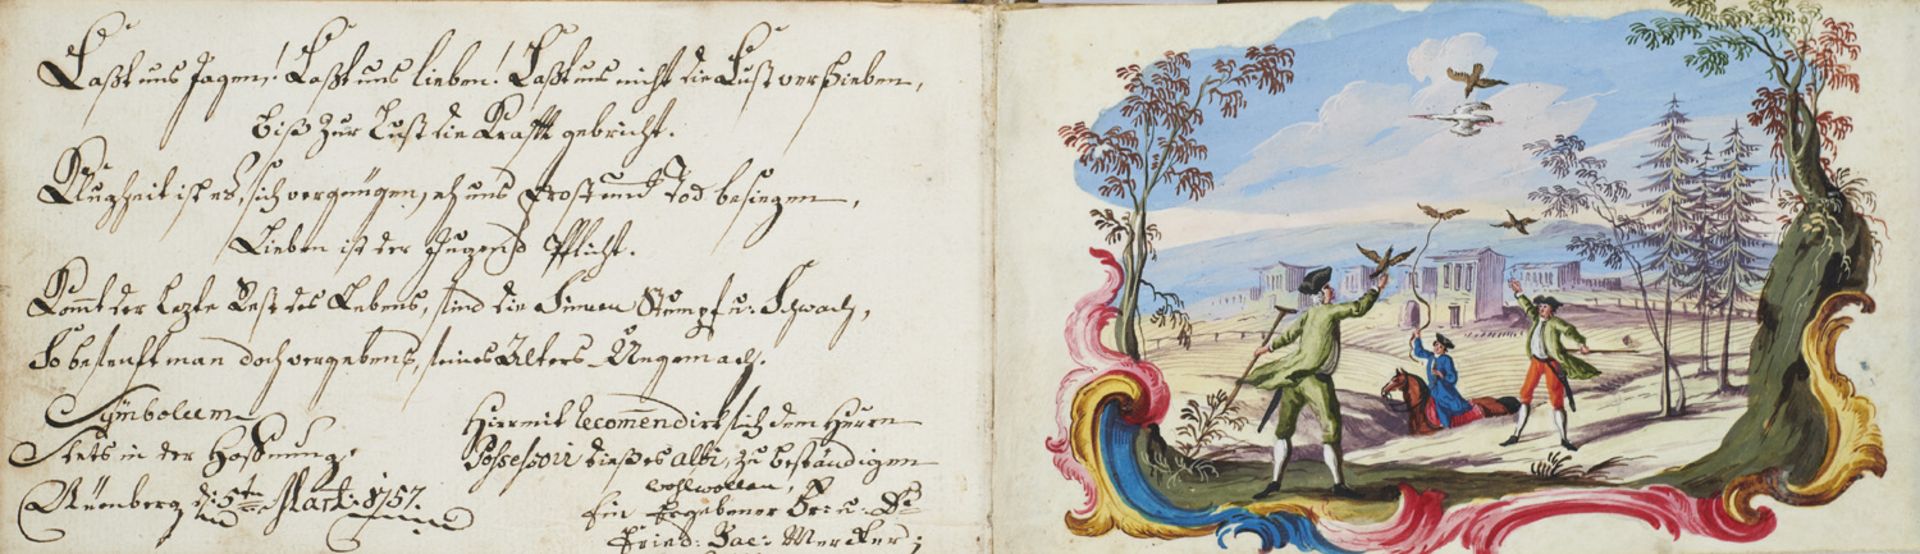 Laßt uns Jagen! Laßt uns lieben! Laßt uns nicht die Lust verschieben,
biß zur Lust die Krafft gebricht.
Klugheit ist es, sich vergnügen, eh uns Frost und Tod besiegen,
Lieben ist der Jugend Pflicht.
Kom̅t der lezte Rest des Lebens, sind die Sinnen Stumpf u: Schwach,
So beseufft man doch vergebens, seines Alters Ungemach.
Symbolum
Stets in der Hoffnung.
Nürnberg d: 5ten Mart: 1757.
Hiermit recom̅endirt sich dem Herrn
Possessori dießes albi, zu beständigen
wohlwollen,
Ein Ergebener Dr: u:
Fried: Jac: Mercker;